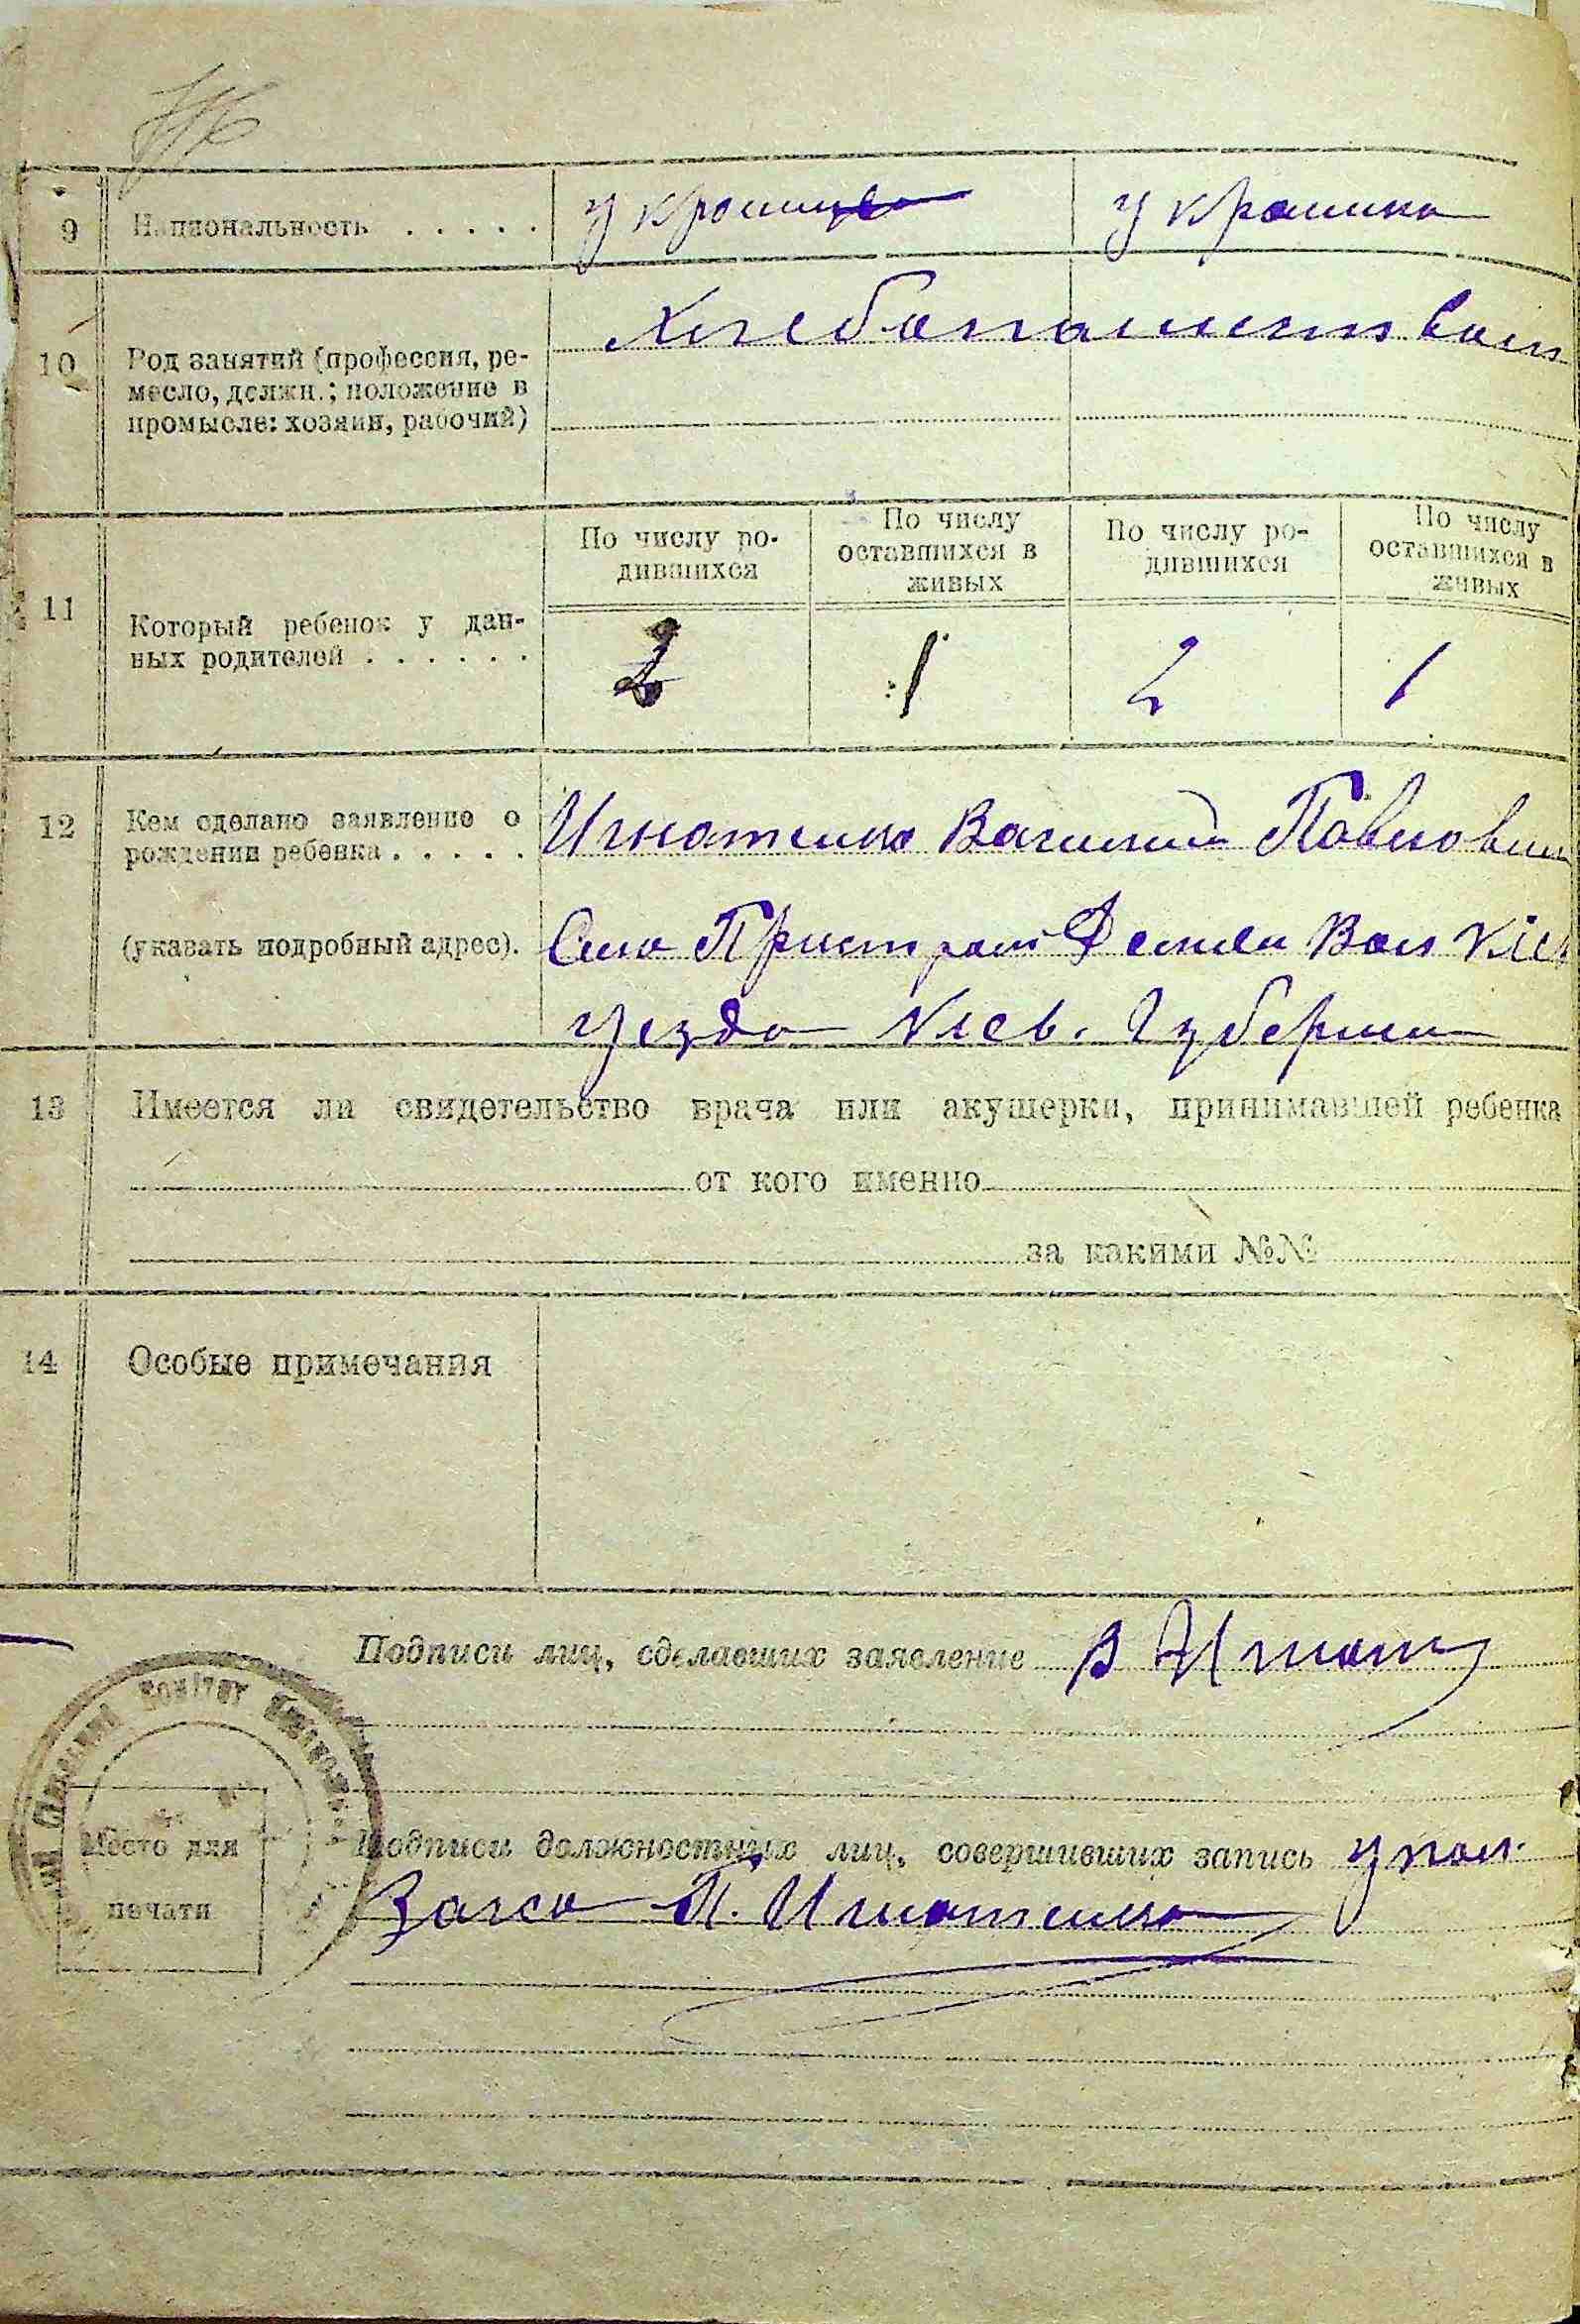 9 Национальность . . . . . украинец украинка
10 Род занятий (профессия, ре-
месло, должн.; положение в
промысле: хозяин, рабочий)
Хлебопашество
По числу ро-
дившихся
По числу
оставшихся в
живых
По числу ро-
дившихся
По числу
оставшихся в
живых
11 Который ребенок у дан-
ных родителей . . . . . .
2 1 2 1
12 Кем сделано заявление о
рождении ребенка . . . . .
Игнатенко Василий Павлович
(указать подробный адрес).
Село Пристром Вол Киев
уезда Киев. Губернии
13 Имеется ли свидетельство врача или акушерки, принимавшей ребенка
от кого именно
за какими №№
14 Особые примечания
Подписи лиц, сделавших заявление В Игнат
Подписи должностных лиц, совершивших запись упол.
Загса П. Игнатенко
Место для
печати
Комітет